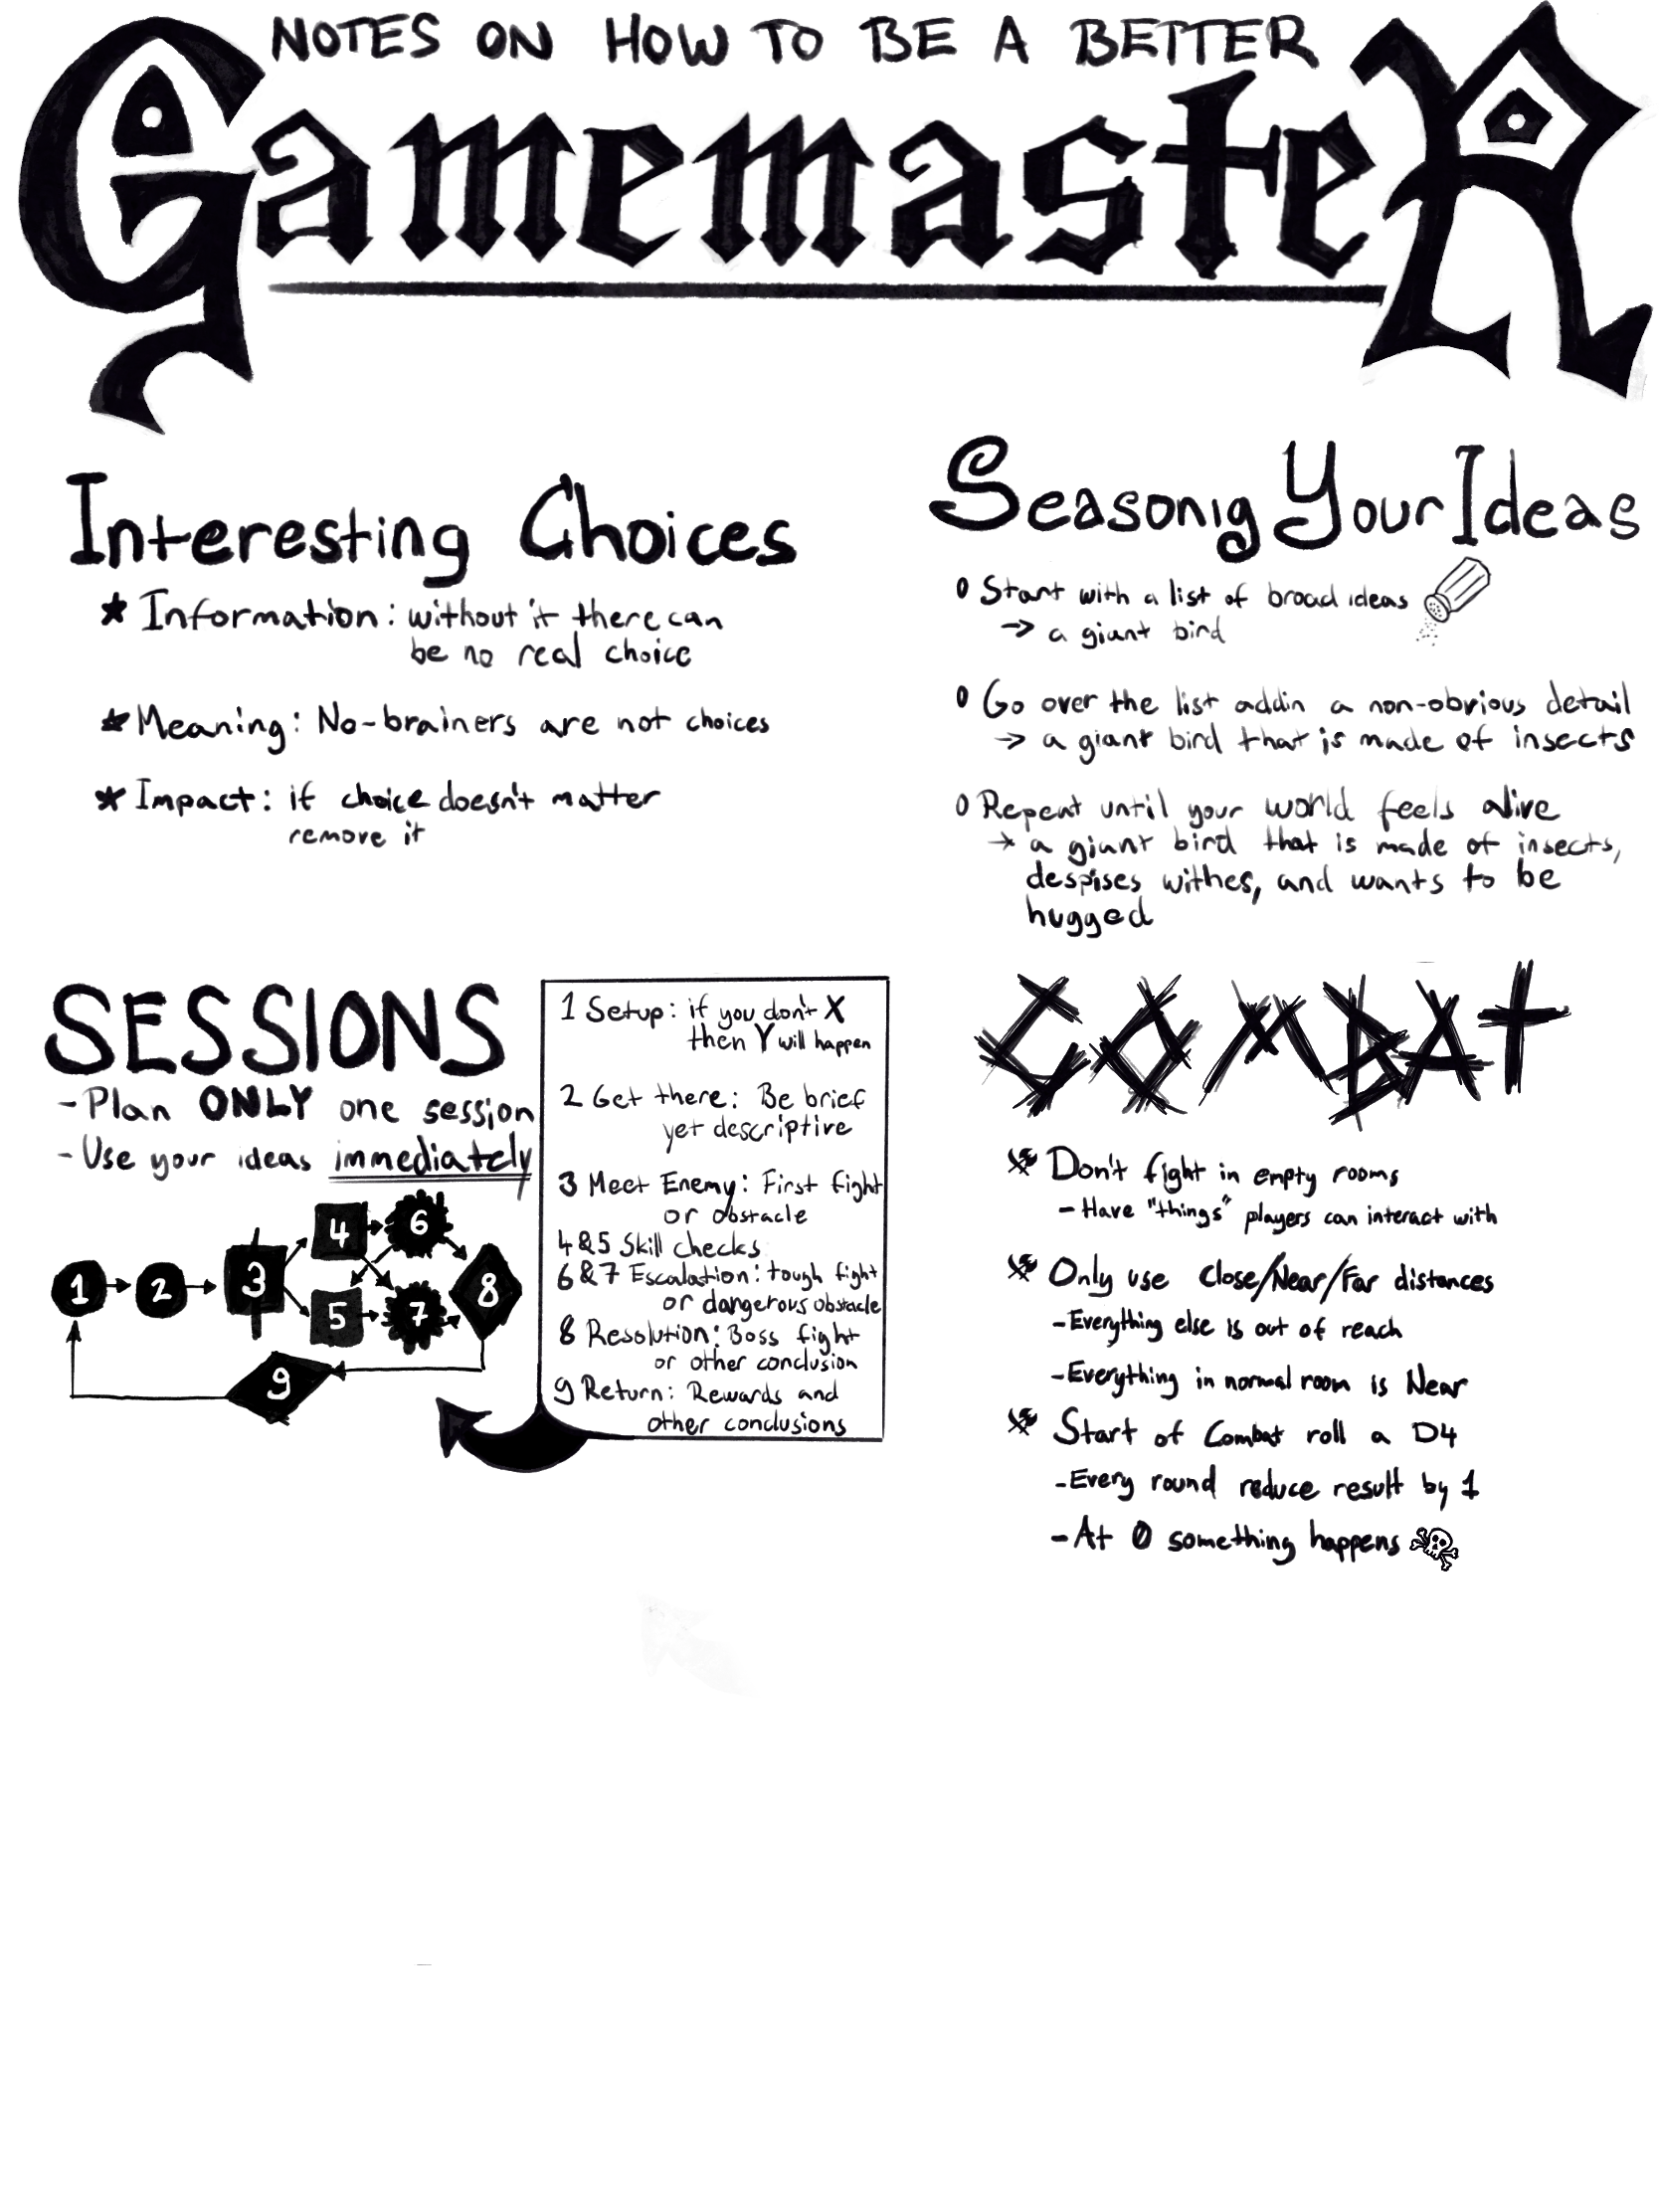 NOTES ON HOW TO BE A BETTER
GamemasteR
Interesting Choices
* Information: without it there can
be no real choice
* Meaning: No-brainers are not choices
* Impact: if choice doesn't matter
remove it
Seasonig Your Ideas
0 Start with a list of broad ideas
→ a giant bird
0 Go over the list addin a non-obvious detail
→ a giant bird that is made of insects
0 Repeat until your world feels alive
→ a giant bird that is made of insects,
despises withes, and wants to be
hugged
SESSIONS
- Plan ONLY one session
- Use your ideas immediately
1
2
3
4
5
6
7
8
9
1 Setup: if you don't X
then Y will happen
2 Get there: Be brief
yet descriptive
3 Meet Enemy: First fight
or obstacle
4&5 Skill checks
6&7 Escalation: tough fight
or dangerous obstacle
8 Resolution: Boss fight
or other conclusion
9 Return: Rewards and
other conclusions
COMBAT
Don't fight in empty rooms
- Have "things" players can interact with
Only use Close/Near/Far distances
- Everything else is out of reach
- Everything in normal room is Near
Start of Combat roll a D4
- Every round reduce result by 1
- At 0 something happens